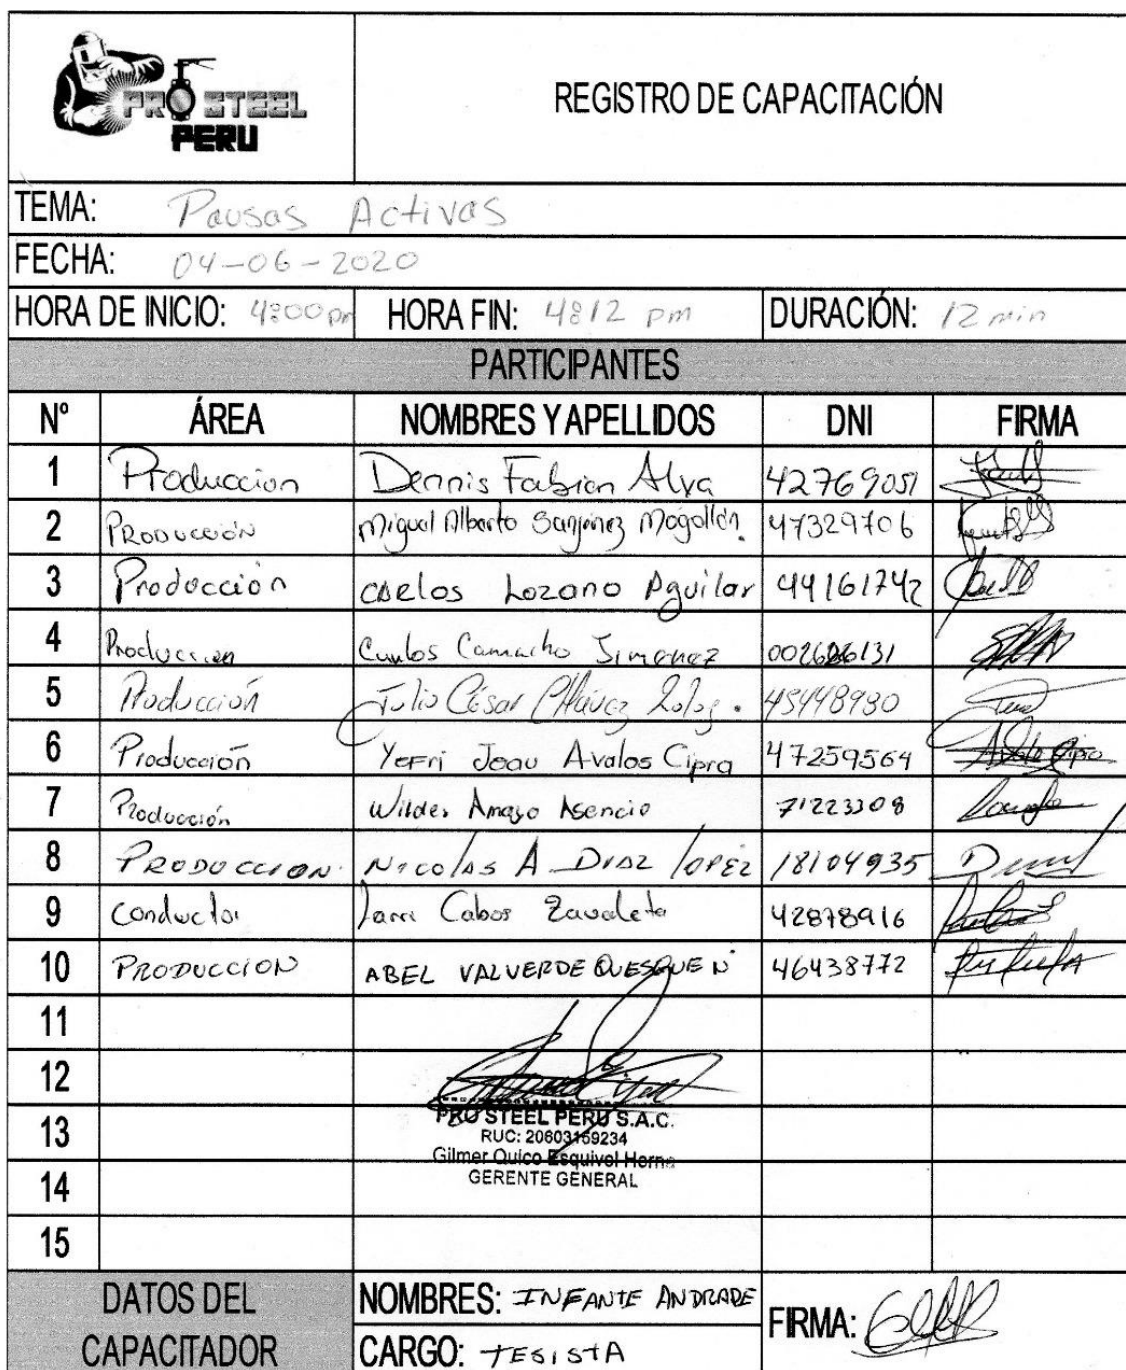 PRO STEEL
PERU
REGISTRO DE CAPACITACIÓN
TEMA: Pausas Activas
FECHA: 04-06-2020
HORA DE INICIO: 4:00 pm HORA FIN: 4:12 pm DURACIÓN: 12 min
PARTICIPANTES
Nº ÁREA NOMBRES Y APELLIDOS DNI FIRMA
1 Produccion Dennis Fabian Alva 42769051
2 PRODUCCIÓN Miguel Alberto Sanjinez Mogollón. 47329706
3 Producción carlos Lozano Aguilar 44161742
4 Produccion Carlos Camacho Jimenez
5 Producción Julio César Chávez 45448980
6 Producción Yefri Jeau Avalos Cipra 47259564
7 Producción Wilder Amayo Asencio 71223308
8 PRODUCCION. NICOLAS A DIAZ LOPEZ 18104935
9 Conductor Cabos Zavaleta 42878916
10 PRODUCCION ABEL VALVERDE QUESQUEN 46438772
11
12
PRO STEEL PERU S.A.C.
13
RUC: 20603159234
Gilmer Quico Esquivel Horna
GERENTE GENERAL
14
15
DATOS DEL CAPACITADOR
NOMBRES: INFANTE ANDRADE
CARGO: TESISTA
FIRMA: